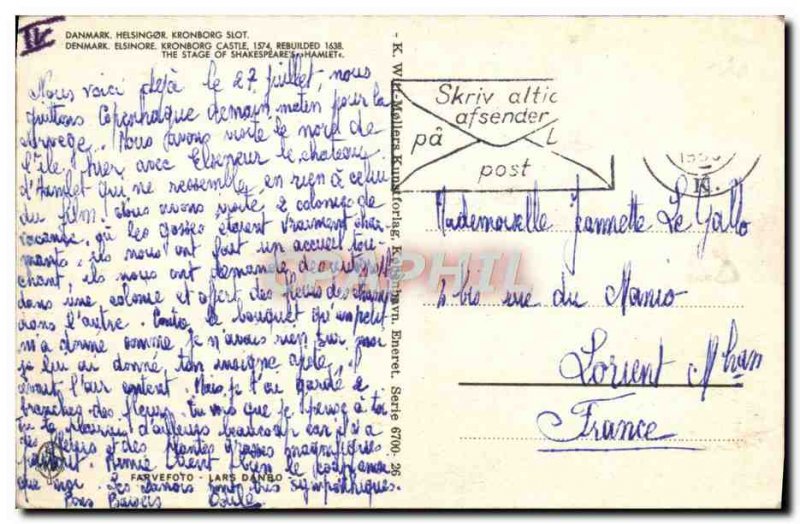 IV
DANMARK. HELSINGØR. KRONBORG SLOT.
DENMARK. ELSINORE. KRONBORG CASTLE, 1574, REBUILDED 1638.
THE STAGE OF SHAKESPEARE'S »HAMLET«.
Nous voici déjà le 27 juillet, nous
quittons Copenhague demain matin pour la
Norvège. Nous avons visité le nord de
l'île hier avec Elseneur le chateau
d'Hamlet qui ne ressemble en rien à celui
du film. Nous avons visité 2 colonies de
vacances, où les gosses étaient vraiment char
mants, ils nous ont fait un accueil tou
chant, ils nous ont demandé
dans une colonie et offert des fleurs des champs
dans l'autre. le bouquet qu'un petit
m'a donné comme je n'avais rien sur moi
je lui ai donné ton insigne
avait l'air content. Mais je t'ai gardé 2
branches des fleurs, tu vois que je pense à toi
d'ailleurs beaucoup car il y a
des et des plantes grasses magnifiques
partout. Mimie bien le
que moi. Les danois sont très sympathiques.
Bons Baisers
FARVEFOTO - LARS DANBO
- K. Witt-Møllers Kunstforlag, København. Eneret. Serie 6700. 26
Skriv altid
afsender
på
post
K.
Mademoiselle Jeannette Le Gallo
2 bis rue du Manio
Lorient Mhan
France
CPAPHIL